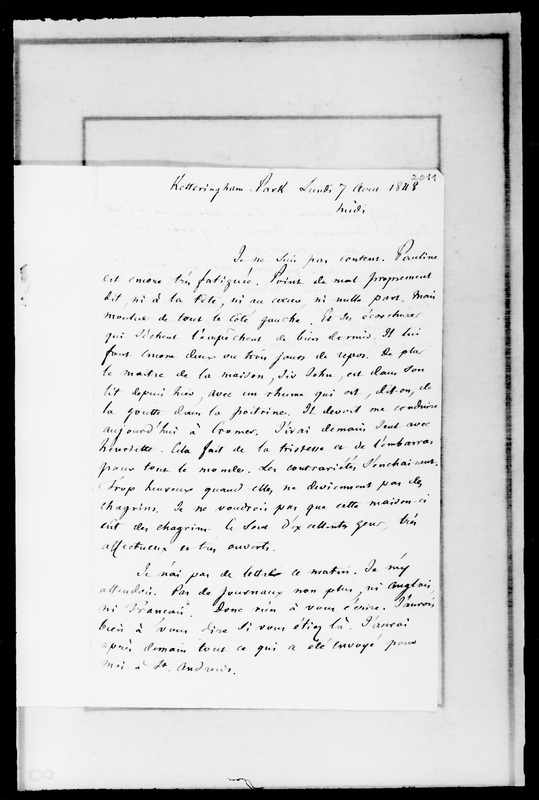 2011
Ketteringham Park Lundi 7 Aout 1848
midi
Je ne suis pas content. Pauline
est encore très fatiguée. Point de mal proprement
dit, ni à la tête, ni au coeur, ni nulle part. Mais
moulue de tout le côté gauche. Et ses écorchures
qui sèchent l'empêchent de bien dormir. Il lui
faut encore deux ou trois jours de repos. De plus
le maitre de la maison, Sir John, est dans son
lit depuis hier, avec un rhume qui est, dit-on, de
la goutte dans la poitrine. Il devoit me conduire
aujourd'hui à Cromer. J'irai demain, seul avec
Henriette. Cela fait de la tristesse et de l'embarras
pour tout le monde. Les contrariétés s'enchainent.
Trop heureux quand elles ne deviennent pas des
chagrins. Je ne voudrois pas que cette maison-ci
eut des chagrins. Ce sont d'excellents gens, très
affectueux et très ouverts.
Je n'ai pas de lettre ce matin. Je m'y
attendois. Pas de journaux non plus, ni Anglais
ni Français. Donc rien à vous écrire. J'aurois
bien à vous dire si vous étiez là. J'aurai
après demain tout ce qui a été envoyé pour
moi à St. Andrews.